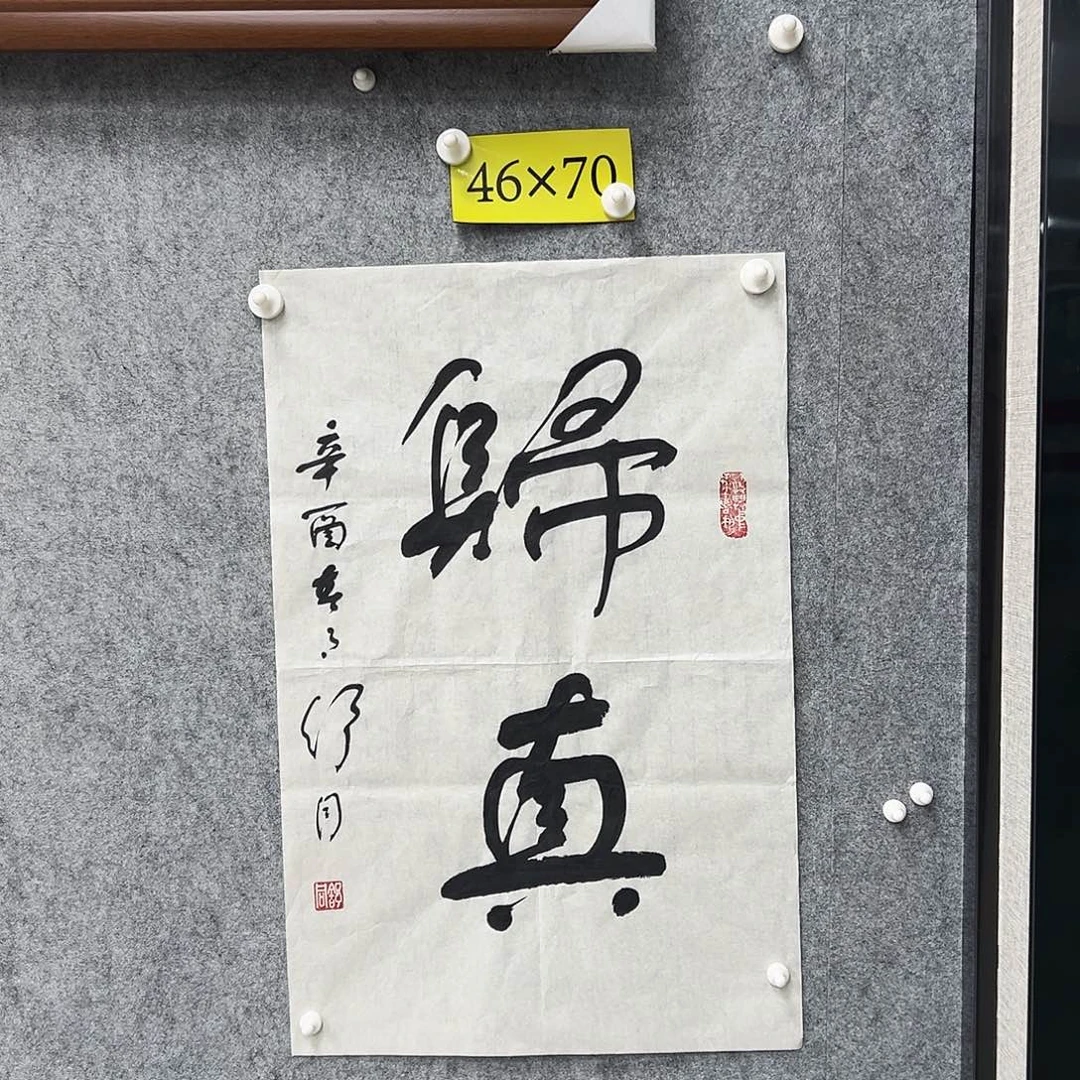 46×70
歸真
辛酉春月舒同
舒同